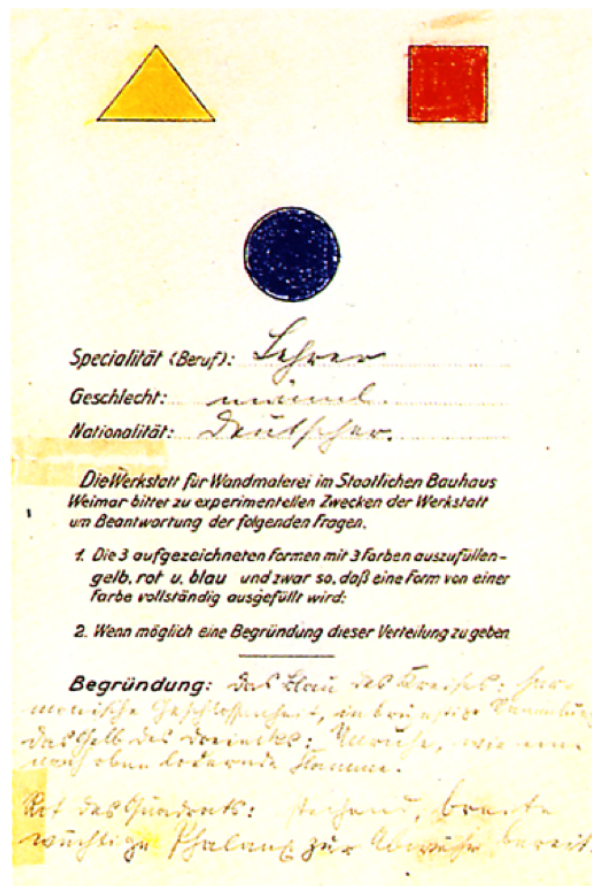 Specialität (Beruf): Lehrer
Geschlecht: männl.
Nationalität: Deutscher.
Die Werkstatt für Wandmalerei im Staatlichen Bauhaus
Weimar bittet zu experimentellen Zwecken der Werkstatt
um Beantwortung der folgenden Fragen.
1. Die 3 aufgezeichneten Formen mit 3 Farben auszufüllen-
gelb, rot u. blau und zwar so, daß eine Form von einer
Farbe vollständig ausgefüllt wird:
2. Wenn möglich eine Begründung dieser Verteilung zu geben
Begründung: Das Blau des Kreises: har-
monische Geschlossenheit, inbrünstige Sammlung
Das Gelb des Dreiecks: Unruhe, wie eine
nach oben lodernde Flamme.
Rot des Quadrats: stehend, breite
wuchtige Phalanx zur Abwehr bereit.